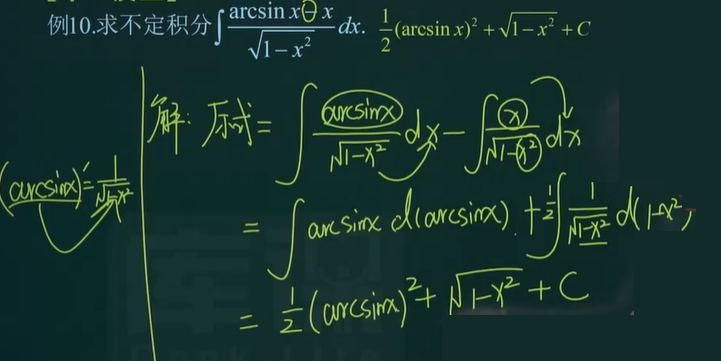 例10.求不定积分∫(arcsin x − x)/√(1−x²) dx. 1/2(arcsin x)²+√(1−x²)+C
解: 原式= ∫ arcsinx/√(1-x²) dx − ∫ x/√(1-x²) dx
(arcsinx)'=1/√(1-x²)
= ∫ arcsinx d(arcsinx) + 1/2 ∫ 1/√(1-x²) d(1-x²)
= 1/2 (arcsinx)² + √(1-x²) + C